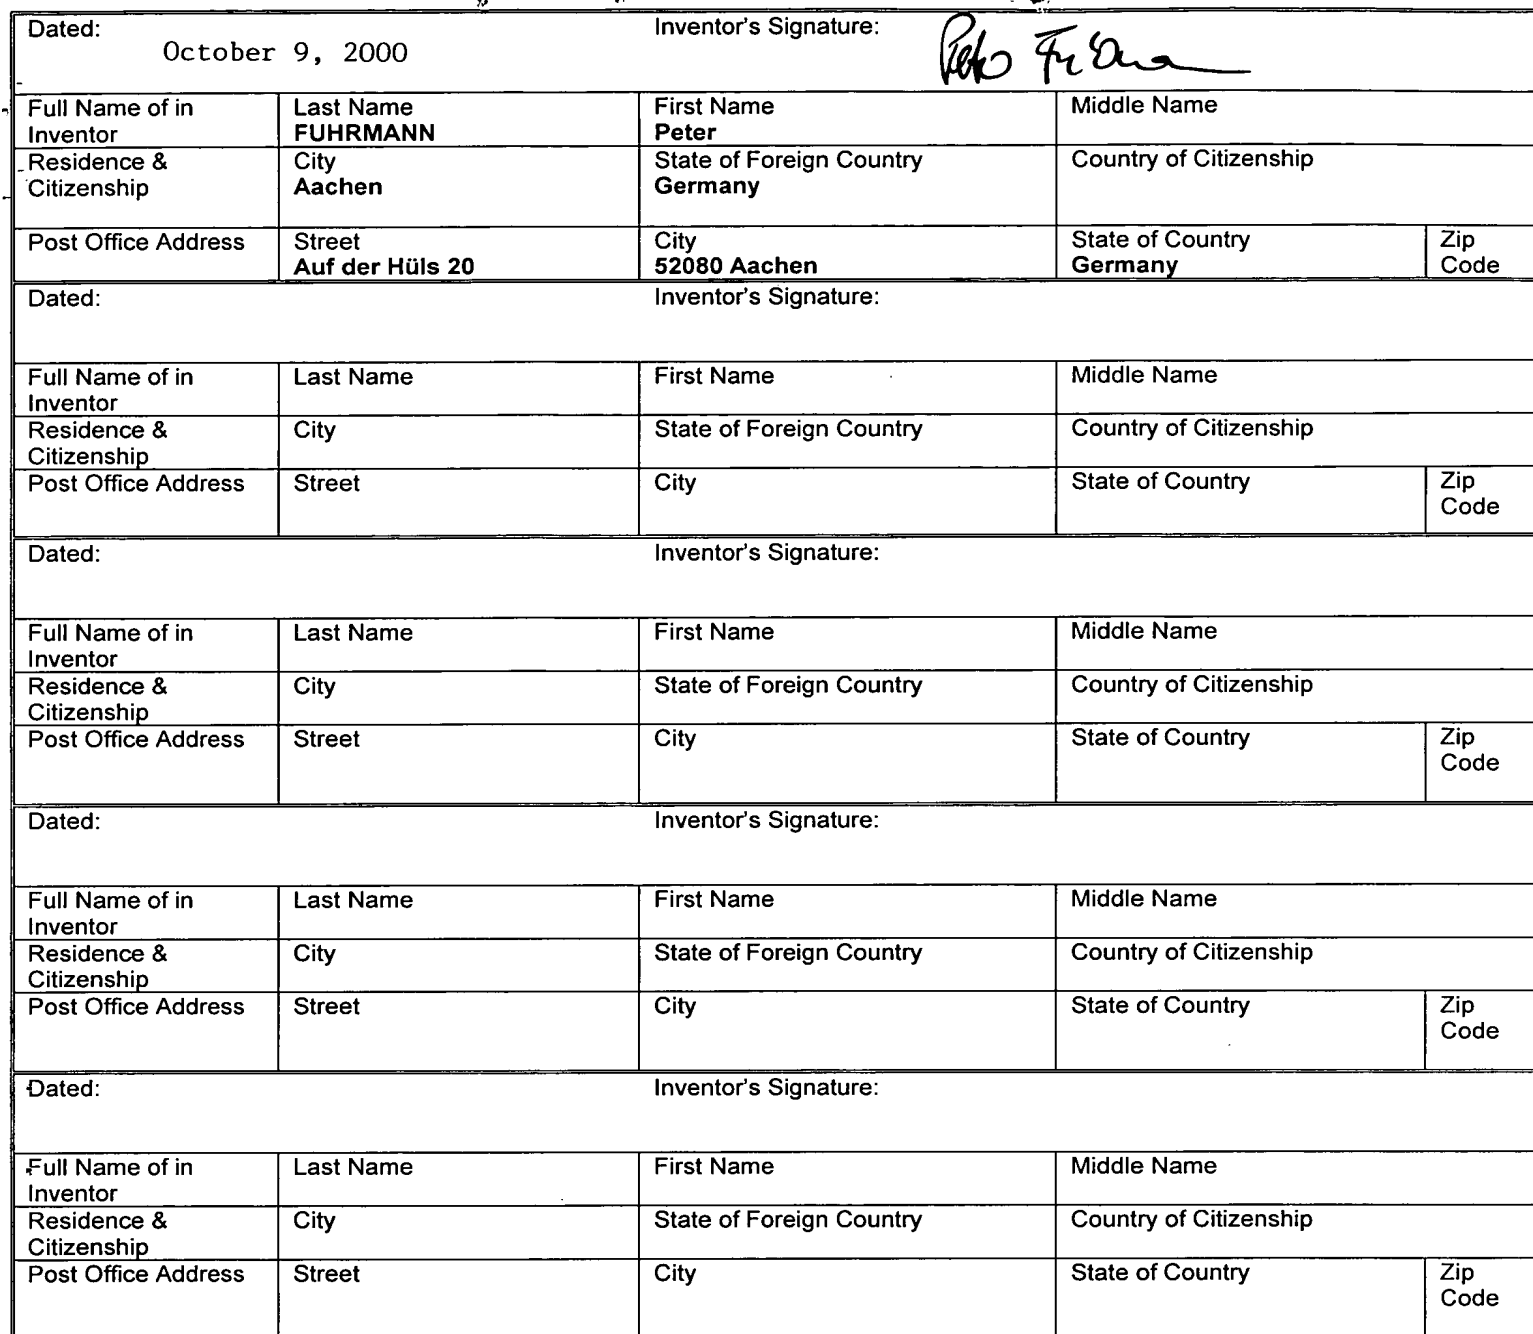 Dated: Inventor's Signature:
October 9, 2000
Full Name of in Inventor Last Name FUHRMANN First Name Peter Middle Name
Residence & Citizenship City Aachen State of Foreign Country Germany Country of Citizenship
Post Office Address Street Auf der Hüls 20 City 52080 Aachen State of Country Germany Zip Code
Dated: Inventor's Signature:
Full Name of in Inventor Last Name First Name Middle Name
Residence & Citizenship City State of Foreign Country Country of Citizenship
Post Office Address Street City State of Country Zip Code
Dated: Inventor's Signature:
Full Name of in Inventor Last Name First Name Middle Name
Residence & Citizenship City State of Foreign Country Country of Citizenship
Post Office Address Street City State of Country Zip Code
Dated: Inventor's Signature:
Full Name of in Inventor Last Name First Name Middle Name
Residence & Citizenship City State of Foreign Country Country of Citizenship
Post Office Address Street City State of Country Zip Code
Dated: Inventor's Signature:
Full Name of in Inventor Last Name First Name Middle Name
Residence & Citizenship City State of Foreign Country Country of Citizenship
Post Office Address Street City State of Country Zip Code